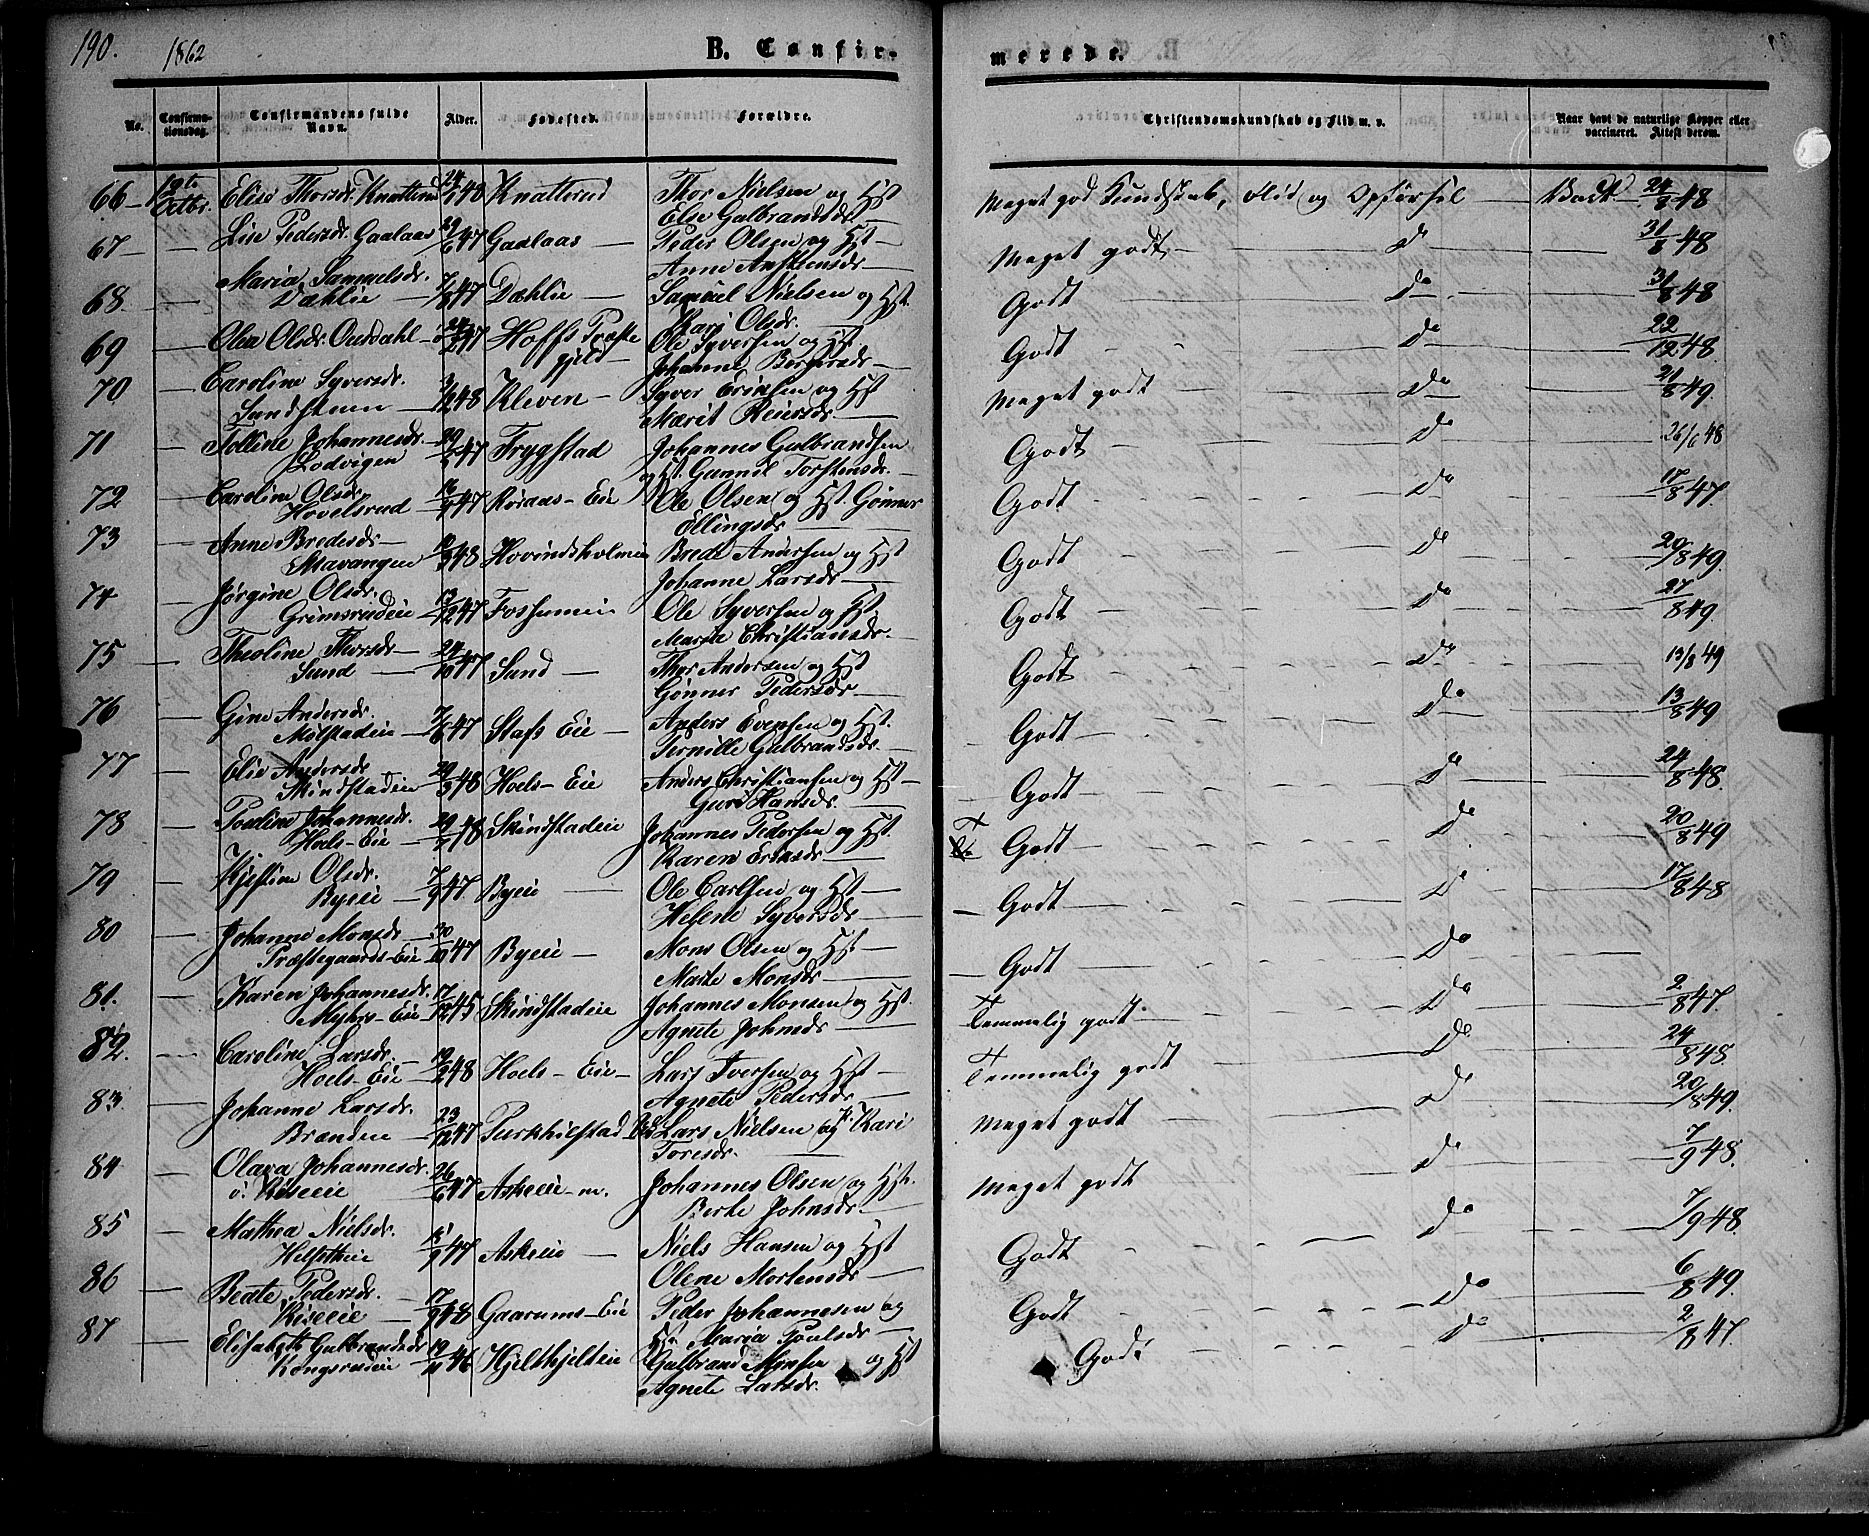 190. 1862
B. Confirmerede.
No. Confirmationsdag. Confirmandens fulde Navn. Alder. Fødested. Forældre. Christendomskundskab og Flid m. v. Naar havt de naturlige Kopper eller vaccineret. Attest derom.
66 12te Octbr. Elise Thorsdr. Knatterud 48 Knatterud Thor Nielsen og Hst Else Gulbrandsdr Meget god Kundskab, Flid og Opførsel Vact. 24/8 48
67 — Lise Pedersdr. Gaalaas 29/6 47 Gaalaas — Peder Olsen og Hst — Anne Amstensdr — Meget godt Do 31/8 48
68 — Maria Samuelsdr. Dæhlie — 7/8 47 Dæhlie — Samuel Nielsen og Hst. Kari Olsdr. — Godt Do 31/8 48
69 — Olea Olsdr. 47 Hoffs Præstegjeld — Ole Syversen og Hst Johanne Borgersdr — Godt Do 22/12 48
70 — Caroline Syversdr. Sandstuen — 48 Kleven — Syver Eriksen og Hst Marit Reiersdr. — Meget godt Do 21/8 49.
71 — Tolline Johannesdr. Lodvigen 47 Frygstad Johannes Gulbrandsen og Hst. Gunnil Torstensdr. — Godt Do 26/6 48
72 — Caroline Olsdr. Hovelsrud — 16/9 47 Røraas-Eie Ole Olsen og Hst. Gønner Ellingsdr — Godt Do 17/8 47.
73 — Anne Bredesdr — Mavangen 48 Hovindsholmen Brede Andersen og Hst Johanne Larsdr — Godt Do 20/8 49.
74 — Jørgine Olsdr. Grimsrudeie — 13/12 47 Fossumeie Ole Syversen og Hst. Marthe Christiansdr. — Godt Do 27/8 49.
75 — Theoline Thorsdr — Sund — 24/10 47 Sund — Thor Andersen og Hst Gønner Pedersdr — Godt Do 13/8 49
76 — Gine Andersdr. Mølstadeie — 7/6 47 Stafs Eie — Anders Evensen og Hst. Pernille Gulbrandsdr. — Godt Do 13/8 49
77 — Elie Andersdr Skindstadeie — 48 Hoels-Eie Anders Christiansen og Hst — Guri Hansdr. — Godt Do 24/8 48.
78 — Pouline Johannesdr. Hoels-Eie — 48 Skindstadeie Johannes Pedersen og Hst. Karen Eriksdr — Godt Do 20/8 49
79 — Kjestine Olsdr. Byeie — 7/9 47 Byeie — Ole Carlsen og Hst — Helene Syversdr — Godt Do 17/8 48
80 — Johanne Monsdr — Præstegaards-Eie 30/10 47 Byeie — Mons Olsen og Hst — Marte Monsdr — Godt Do
81. — Karen Johannesdr. Myhrs-Eie 17/12 45 Skindstadeie Johannes Monsen og Hst. Agnete Johnsdr — Temmelig godt Do 2/8 47.
82. — Caroline Larsdr. — Hoels-Eie — 19/2 48 Hoels-Eie — Lars Iversen og Hst — Agnete Pedersdr — Temmelig godt Do 24/8 48.
83. — Johanne Larsdr. Brændeie — 23/12 47 Purkhulstad Lars Nielsen og Kari Toresdr. — Meget godt Do 20/8 49.
84 — Olava Johannesdr. ö. Riseeie 26/6 47 Askeeie — Johannes Olsen og Hst. Berte Johnsdr. — Meget godt Do 7/9 48.
85 — Mathea Nielsdr. Helsetheie 15/9 47 Askeeie — Niels Hansen og Hst Olene Mortensdr — Godt Do 7/9 48.
86 — Beate Pedersdr. — Riseeie — 48 Gaarums-Eie Peder Johannesen og Hst. Maria Poulsdr — Godt Do 6/8 49.
87 — Elisabeth Gulbrandsdr Kongsrudeie 19/11 46 Hjelthjelteie Gulbrand Monsen og Hst Agnete Larsdr. Godt Do 2/8 47.